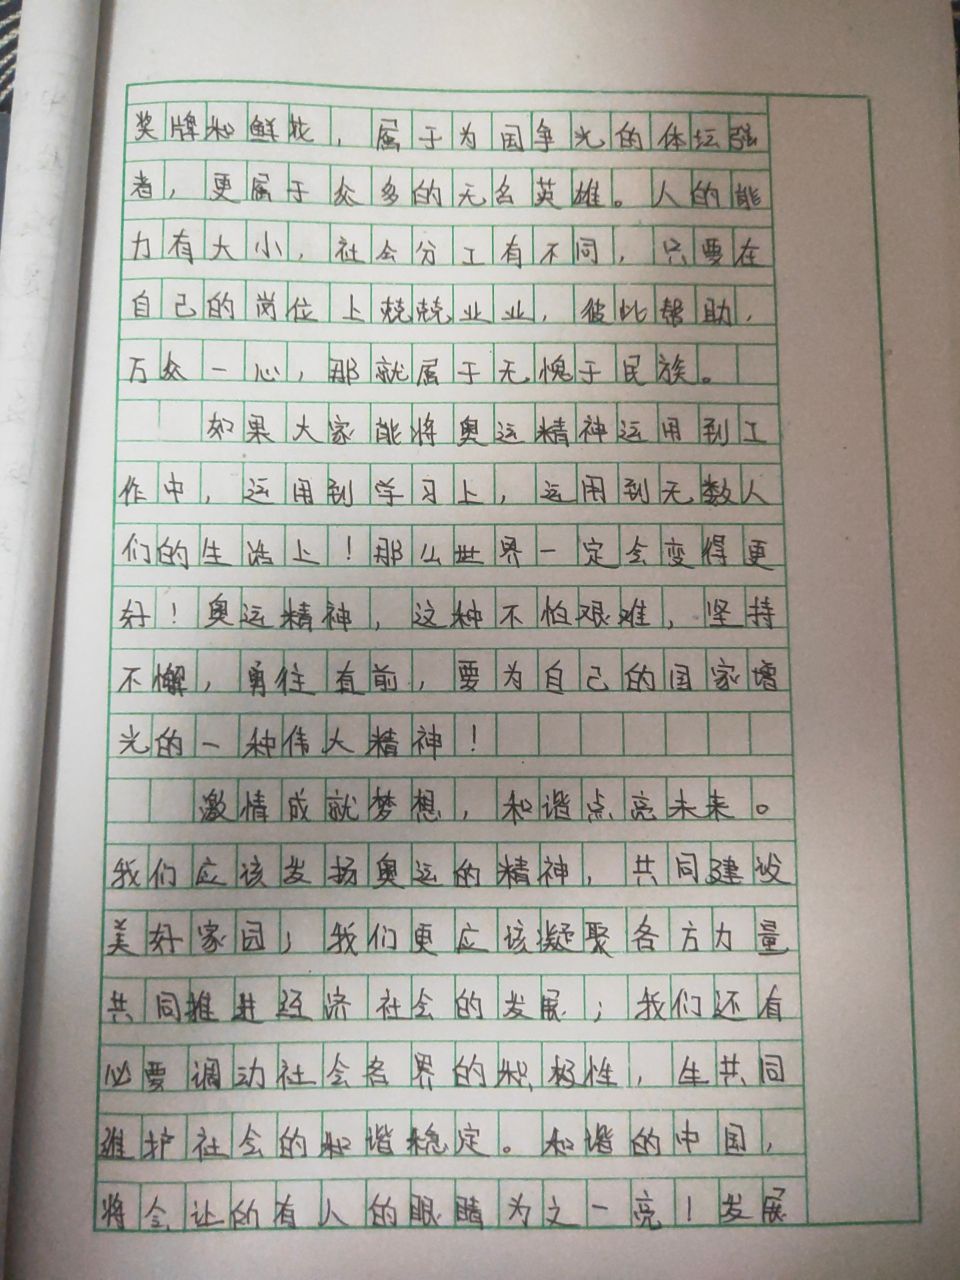 奖牌和鲜花，属于为国争光的体坛强
者，更属于众多的无名英雄。人的能
力有大小，社会分工有不同，只要在
自己的岗位上兢兢业业，彼此帮助，
万众一心，那就属于无愧于民族。
如果大家能将奥运精神运用到工
作中，运用到学习上，运用到无数人
们的生活上！那么世界一定会变得更
好！奥运精神，这种不怕艰难，坚持
不懈，勇往直前，要为自己的国家增
光的一种伟大精神！
激情成就梦想，和谐点亮未来。
我们应该发扬奥运的精神，共同建设
美好家园；我们更应该凝聚各方力量
共同推进经济社会的发展；我们还有
必要调动社会各界的积极性，生共同
维护社会的和谐稳定。和谐的中国，
将会让的有人的眼睛为之一亮！发展